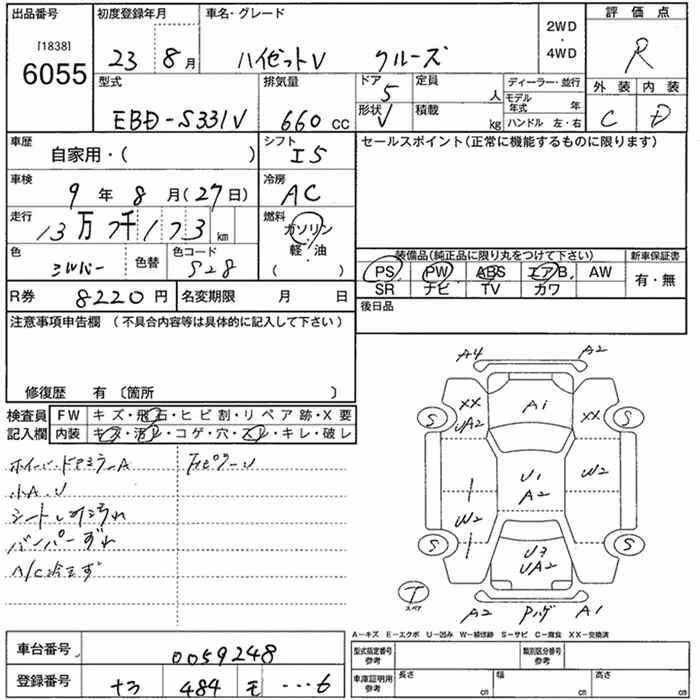 出品番号 初度登録年月 車名・グレード 2WD・4WD 評価点
[1838] 6055 23 8月 ハイゼットV クルーズ R
型式 排気量 ドア 5 定員 人 ディーラー・並行 外装 内装
EBD-S331V 660cc 形状 V 積載 kg モデル年式 年 C D
ハンドル 左・右
車歴 自家用・( ) シフト I5 セールスポイント(正常に機能するものに限ります)
車検 9年 8月(27日) 冷房 AC
走行 13万7千173km 燃料 ガソリン
軽・油
( )
色 シルバー 色替 色コード S28
装備品(純正品に限り丸をつけて下さい) 新車保証書
PS PW ABS エアB AW 有・無
SR ナビ TV カワ
R券 8220円 名変期限 月 日 後日品
注意事項申告欄 (不具合内容等は具体的に記入して下さい)
修復歴 有 〔箇所 〕
検査員 FW キズ・飛石・ヒビ割・リペア跡・X要
記入欄 内装 キズ・汚レ・コゲ・穴・スレ・キレ・破レ
小A.U
バンパーずれ
A/C冷えず
A4 A2
XX A1 XX
S UA2 S
U1 W2
A2
W2
S U3 S
UA2
T
スペア
A2 A1
A-キズ E-エクボ U-凹み W-補修跡 S-サビ C-腐食 XX-交換済
車台番号 0059248 型式指定番号 参考 類別区分番号 参考
登録番号 484 モ …6 車庫証明用 参考 長さ cm 幅 cm 高さ cm